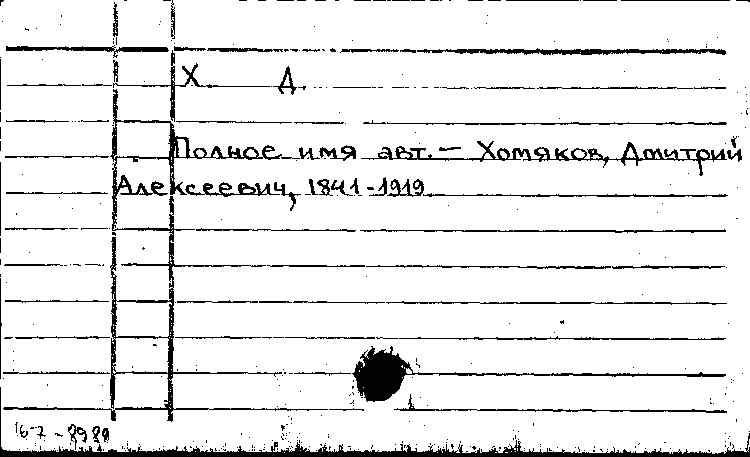 Х. Д.
Полное имя авт. — Хомяков, Дмитрий
Алексеевич, 1841-1919
16-7 - 8989